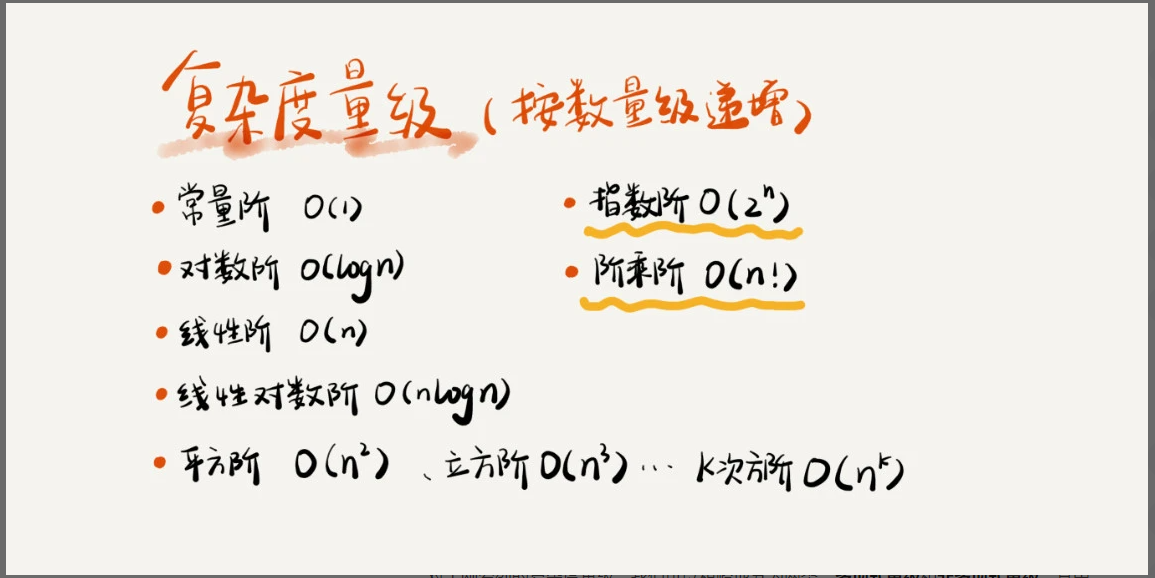 复杂度量级（按数量级递增）
常量阶 O(1)
对数阶 O(logn)
线性阶 O(n)
线性对数阶 O(nlogn)
平方阶 O(n²) 、立方阶 O(n³) … k次方阶 O(nᵏ)
指数阶 O(2ⁿ)
阶乘阶 O(n!)